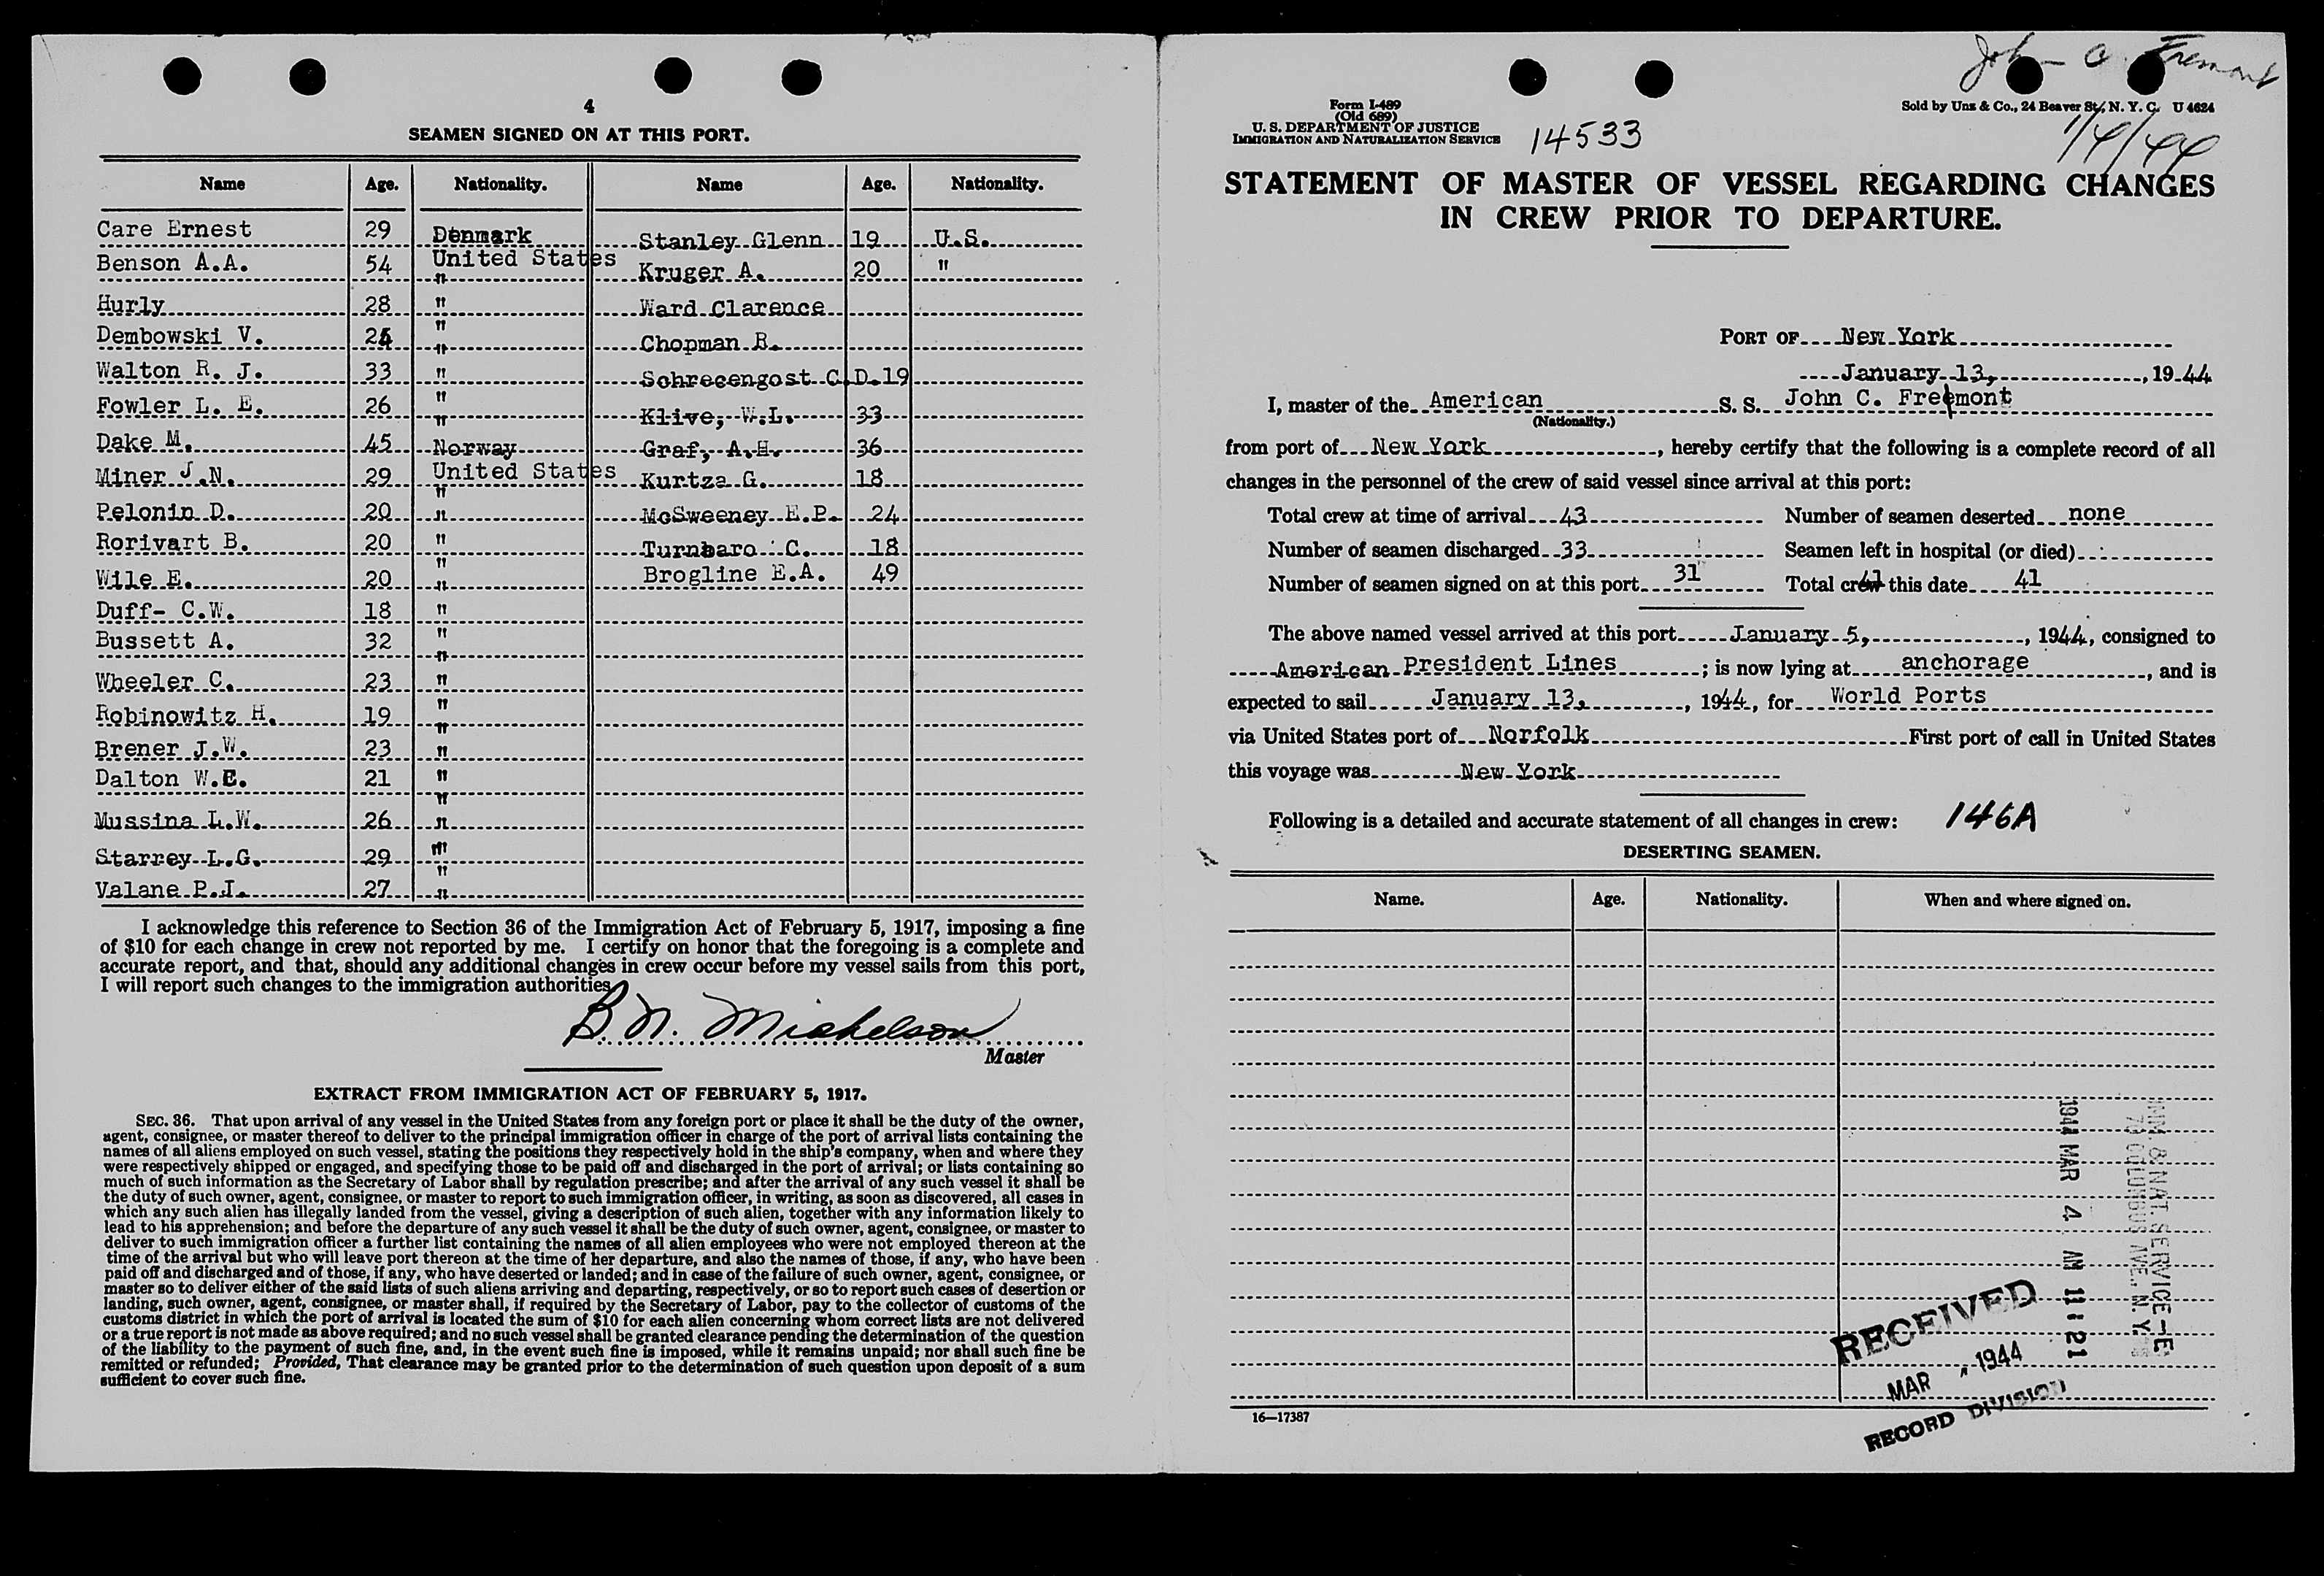 4
SEAMEN SIGNED ON AT THIS PORT.
Name Age. Nationality. Name Age. Nationality.
Care Ernest 29 Denmark Stanley Glenn 19 U.S.
Benson A.A. 54 United States Kruger A. 20 "
Hurly 28 " Ward Clarence
Dembowski V. " Chopman R.
Walton R. J. 33 " Schrecengost C.D. 19
Fowler L. E. 26 " Klive, W.L. 33
Dake M. 45 Norway Graf, A.H. 36
Miner J.N. 29 United States Kurtza G. 18
Pelonin D. 20 " McSweeney E.P. 24
Rorivart B. 20 " C. 18
Wile E. 20 " Brogline E.A. 49
Duff- C.W. 18 "
Bussett A. 32 "
Wheeler C. 23 "
Robinowitz H. 19 "
Brener J.W. 23 "
Dalton W.E. 21 "
Mussina L.W. 26 "
Starrey L.G. 29 "
Valane P.J. 27 "
I acknowledge this reference to Section 36 of the Immigration Act of February 5, 1917, imposing a fine
of $10 for each change in crew not reported by me. I certify on honor that the foregoing is a complete and
accurate report, and that, should any additional changes in crew occur before my vessel sails from this port,
I will report such changes to the immigration authorities.
B. N. Michelson
Master
EXTRACT FROM IMMIGRATION ACT OF FEBRUARY 5, 1917.
SEC. 36. That upon arrival of any vessel in the United States from any foreign port or place it shall be the duty of the owner,
agent, consignee, or master thereof to deliver to the principal immigration officer in charge of the port of arrival lists containing the
names of all aliens employed on such vessel, stating the positions they respectively hold in the ship's company, when and where they
were respectively shipped or engaged, and specifying those to be paid off and discharged in the port of arrival; or lists containing so
much of such information as the Secretary of Labor shall by regulation prescribe; and after the arrival of any such vessel it shall be
the duty of such owner, agent, consignee, or master to report to such immigration officer, in writing, as soon as discovered, all cases in
which any such alien has illegally landed from the vessel, giving a description of such alien, together with any information likely to
lead to his apprehension; and before the departure of any such vessel it shall be the duty of such owner, agent, consignee, or master to
deliver to such immigration officer a further list containing the names of all alien employees who were not employed thereon at the
time of the arrival but who will leave port thereon at the time of her departure, and also the names of those, if any, who have been
paid off and discharged and of those, if any, who have deserted or landed; and in case of the failure of such owner, agent, consignee, or
master so to deliver either of the said lists of such aliens arriving and departing, respectively, or so to report such cases of desertion or
landing, such owner, agent, consignee, or master shall, if required by the Secretary of Labor, pay to the collector of customs of the
customs district in which the port of arrival is located the sum of $10 for each alien concerning whom correct lists are not delivered
or a true report is not made as above required; and no such vessel shall be granted clearance pending the determination of the question
of the liability to the payment of such fine, and, in the event such fine is imposed, while it remains unpaid; nor shall such fine be
remitted or refunded; Provided, That clearance may be granted prior to the determination of such question upon deposit of a sum
sufficient to cover such fine.
John C. Fremont
Form I-489
(Old 689)
U. S. DEPARTMENT OF JUSTICE
IMMIGRATION AND NATURALIZATION SERVICE
14533
Sold by Unz & Co., 24 Beaver St., N. Y. C. U 4624
1/4/44
STATEMENT OF MASTER OF VESSEL REGARDING CHANGES
IN CREW PRIOR TO DEPARTURE.
PORT OF New York
January 13, 1944
I, master of the American S. S. John C. Freemont
(Nationality.)
from port of New York, hereby certify that the following is a complete record of all
changes in the personnel of the crew of said vessel since arrival at this port:
Total crew at time of arrival 43 Number of seamen deserted none
Number of seamen discharged 33 Seamen left in hospital (or died) -
Number of seamen signed on at this port 31 Total crew this date 41
The above named vessel arrived at this port January 5, 1944, consigned to
American President Lines; is now lying at anchorage, and is
expected to sail January 13, 1944, for World Ports
via United States port of Norfolk First port of call in United States
this voyage was New York
Following is a detailed and accurate statement of all changes in crew: 146A
DESERTING SEAMEN.
Name. Age. Nationality. When and where signed on.
1944 MAR 4 AM 11 21
IMM. & NAT. SERVICE-E
70 COLUMBUS AVE. N.Y.
RECEIVED
MAR 1944
RECORD DIVISION
16—17387